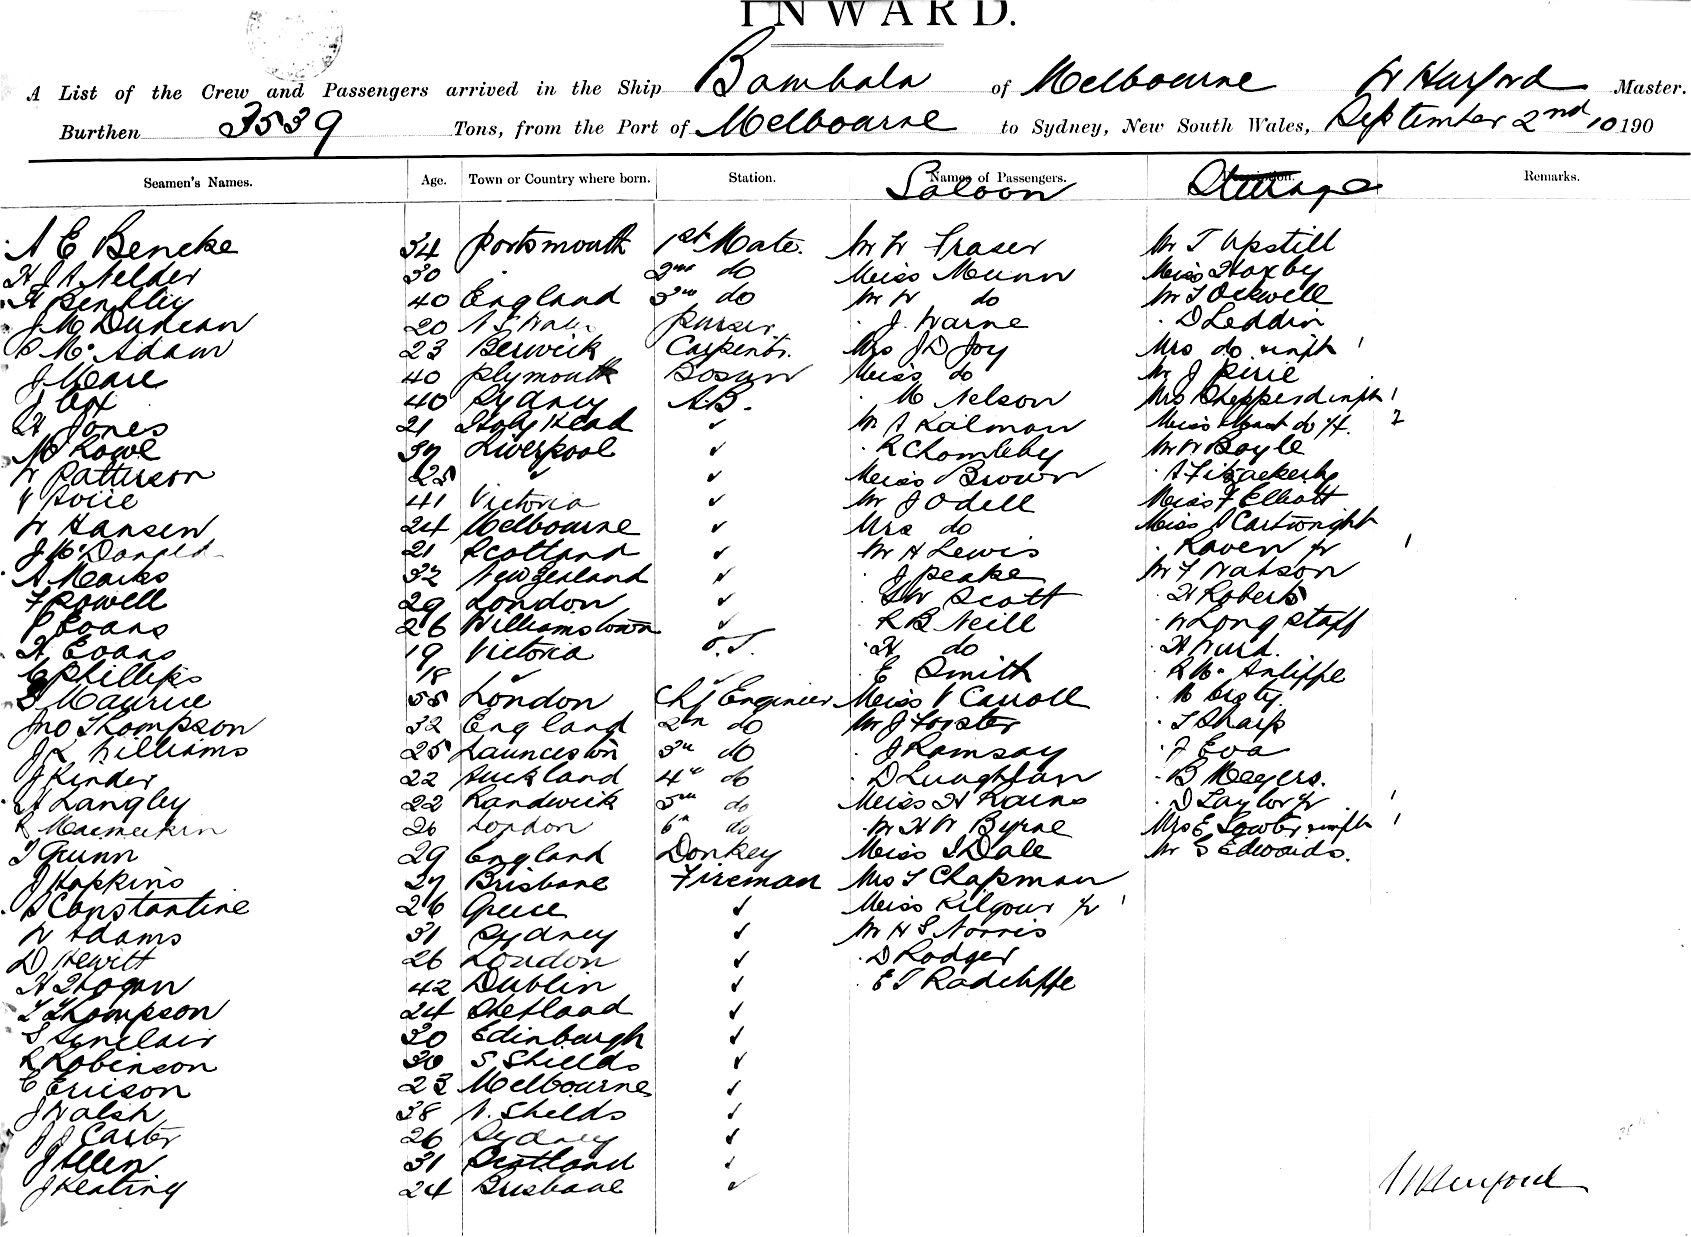 INWARD.
A List of the Crew and Passengers arrived in the Ship Bombala of Melbourne W Hurford Master.
Burthen 3539 Tons, from the Port of Melbourne to Sydney, New South Wales, September 2nd 10 190
Seamen's Names. Age. Town or Country where born. Station. Names of Passengers. Saloon Steerage Remarks.
A E Bencke 34 Portsmouth 1st Mate. Mr W Fraser Mr T Upstill
H J A Nelder 30 2nd do Miss Munn Miss Haxby
Bentley 40 England 3rd do Mr W do Mr T Ockwell
J McDuncan 20 N S Wales Purser J. Warne D Leddin
P Mc Adam 23 Berwick Carpentr. Mrs J D Joy Mrs do inft 1
J Meare 40 Plymouth Bosun Miss do Mr J Pirie
J Cox 40 Sydney A.B. M Nelson Mrs Shepperd infts 1
H Jones 21 Holy Head ✓ Mr A Kalman Miss do 2
M Rowe 37 Liverpool ✓ R Chomleby Mr W Boyle
W Patterson 25 ✓ Miss Brown A
41 Victoria ✓ Mr J Odell Miss F Elliott
W Hansen 24 Melbourne ✓ Mrs do Miss Cartwright
J McDonald 21 Scotland ✓ Mr H Lewis Raven jr 1
A Marks 32 New Zealand ✓ J Peake Mr F Watson
F Powell 29 London ✓ Scott H Roberts
P Evans 26 Williamstown ✓ R B Neill W Longstaff
H Evans 19 Victoria O.S. H do H
C Phillips 18 ✓ ✓ E Smith R Mc
Maurice 55 London Chf Engineer Miss V Carroll
Jno Thompson 32 England 2n do Mr J Forster T Sharp
J L Williams 25 Launceston 3rd do J Ramsay J Eva
J Kinder 22 Auckland 4th do D Luaghlan B Meyers.
H Langley 22 Randwick 5th do Miss H Rains D Taylor jr 1
26 London 6th do Mr H W Byrne Mrs E Lowter infts 1
T Gunn 29 England Donkey Miss I Dale Mr S Edwards.
J Hopkins 27 Brisbane Fireman Mrs T Chapman
Constantine 26 Greece ✓ Miss Kilgour jr 1
W Adams 31 Sydney ✓ Mr H S Norris
D Hewitt 26 London ✓ D Rodger
H Hogan 42 Dublin ✓ E T Radcliffe
T Thompson 24 Shetland ✓
S Synclair 30 Edinburgh ✓
R Robinson 30 S Shields ✓
E Ericson 23 Melbourne ✓
J Walsh 38 N. Shelds ✓
J J Carter 26 Sydney ✓
J Allen 31 Scotland ✓
J Keating 24 Brisbane ✓
W Hurford